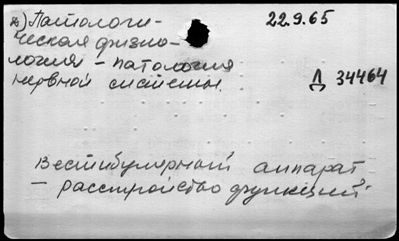 а) Патологи-
ческая физио-
логия - патология
нервной системы.
22.9.65
Д 34464
Вестибулярный аппарат
- расстройство функций